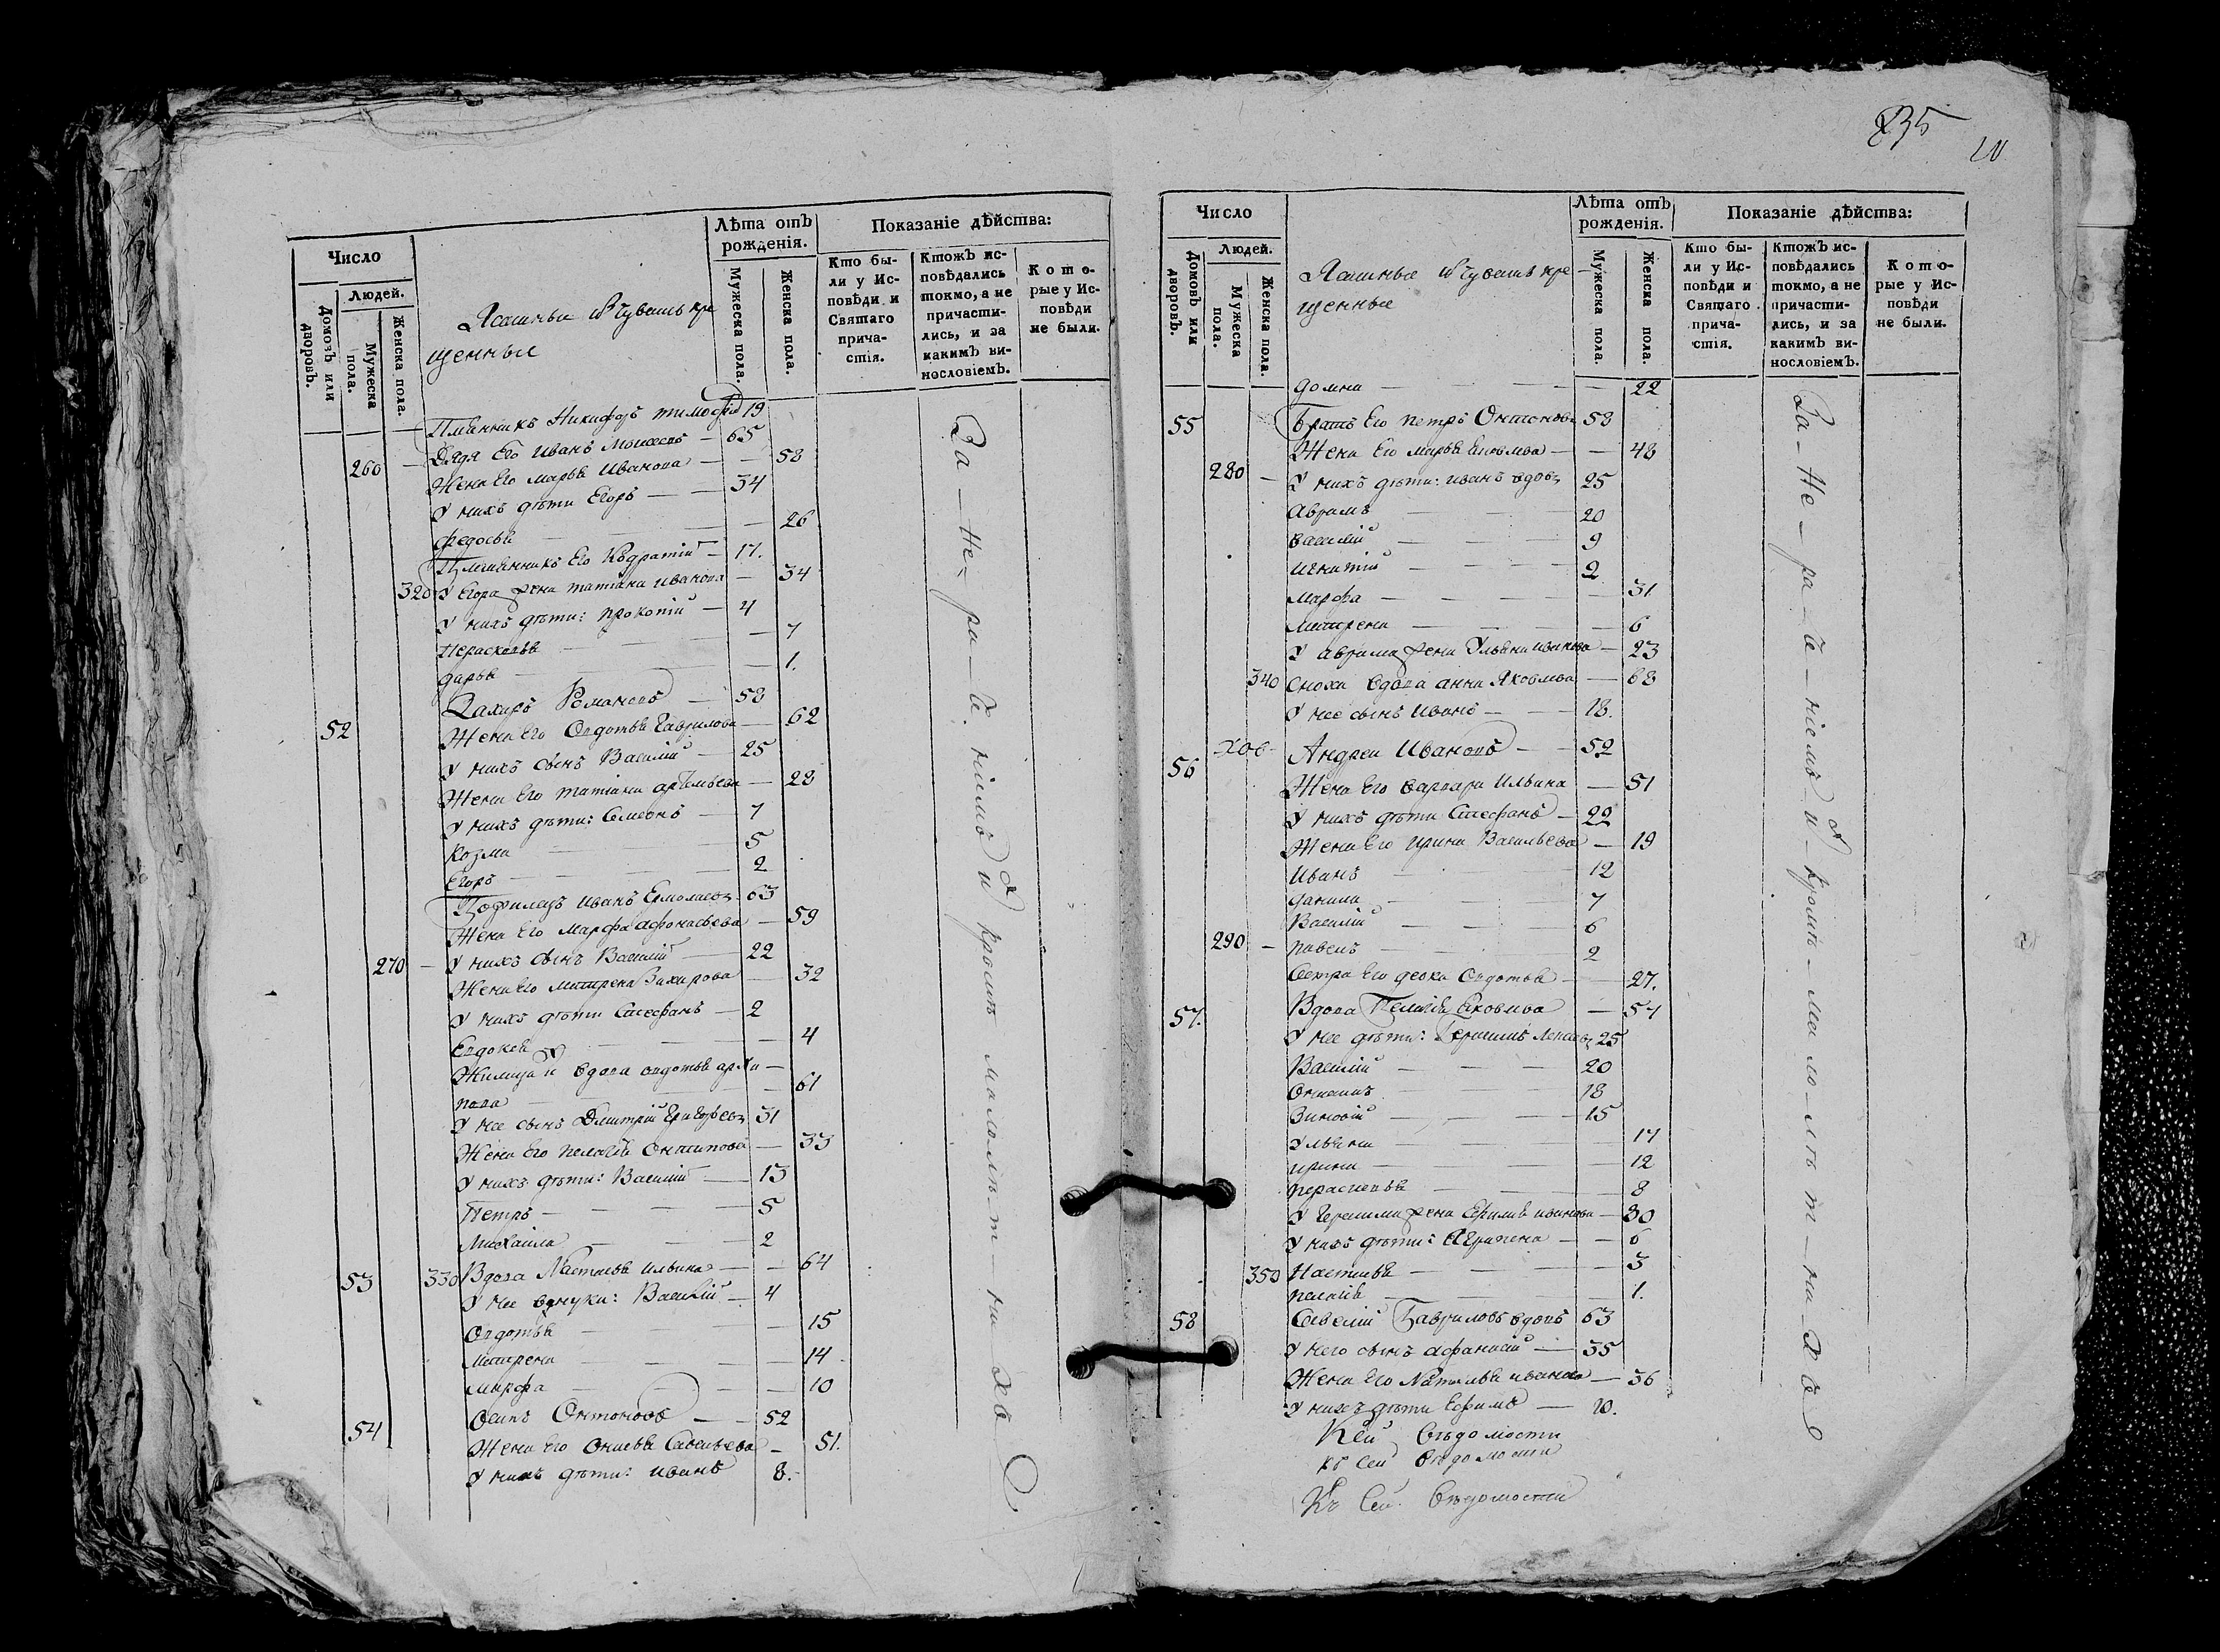 Число
Людей.
Домовъ или дворовъ.
Мужеска пола.
Женска пола.
Ясашные и Чувашъ кре
щенные
Лѣта отъ рожденія.
Мужеска пола.
Женска пола.
Показаніе дѣйства:
Кто были у Исповѣди и Святаго причастія.
Ктожъ исповѣдались токмо, а не причастились, и за какимъ винословіемъ.
Которые у Исповѣди не были.
Племянникъ Никифоръ тимофеев 19
Дядя Его Иванъ Моисеевъ — 65
260 — Жена Его марья Иванова — — 58
У нихъ дѣти Егоръ — — 34
федосья — — — 26
Племянникъ Его Кодратiй — 17.
320 У Егора жена татiана иванова — 34
У нихъ дѣти: прокопiй — 4
Пераскевья — — — 7
дарья — — — 1.
Захаръ Романовъ — 58
52 Жена Его Овдотья Гаврилова — 62
У нихъ сынъ Василiй — 25
Жена Его татiана артемьева — 28
У нихъ дѣти: Семенъ — 7
Козма — — 5
Егоръ — — 2
Иванъ Ермолаевъ 63
Жена Его Марфа афонасьева — 59
270 — У нихъ сынъ Василiй — 22
Жена Его матрена Захарова — 32
У нихъ дѣти Стефанъ — 2
Евдокея — — — 4
вдова овдотья архи —
пова — — — 61
У нее сынъ Дмитрiй Григорьевъ 31
Жена Его пелагея Онтипова — 33
У нихъ дѣти: Василiй — 13
Петръ — — — 5
Михаила — — 2
53 330 Вдова Настасья ильина — — 64
У нее внуки: Василiй — 4
Овдотья — — 15
Матрена — — — 14
марфа — — — 10
54 Осипъ Онтоновъ — — 52
Жена Его Онисья Савельева — 51.
У нихъ дѣти: иванъ 8.
За — Не — ра — де нiемъ и кромѣ малолѣт — на — хо
835
Число
Людей.
Домовъ или дворовъ.
Мужеска пола.
Женска пола.
Ясашные и Чувашъ кре —
щенные
Лѣта отъ рожденія.
Мужеска пола.
Женска пола.
Показаніе дѣйства:
Кто были у Исповѣди и Святаго причастія.
Ктожъ исповѣдались токмо, а не причастились, и за какимъ винословіемъ.
Которые у Исповѣди не были.
домна — — — — 22
55 Братъ Его петръ Онтоновъ 58
Жена Его марья — — 48
280 — У нихъ дѣти: иванъ вдовъ 25
Аврамъ — — — 20
василiй — — — 9
игнатiй — — — 2
марфа — — — — 31
Матрена — — — — 6
У аврама жена Ульяна иванова — 23
340 сноха вдова анна Яковлева — 68
У нее сынъ Иванъ — — 18.
56 Андреи Ивановъ — — 52
Жена Его варвара Ильина — 51
У нихъ дѣти Стефанъ — 22
Жена Его Ирина Васильева — 19
Иванъ — — 12
данила — — — 7
Василiй — — — 6
290 — павелъ — — — 2
Сестра Его девка Овдотья — — 27.
57. Вдова Пелагея Яковлева — 54
У нее дѣти: Герасимъ 25
Василiй — — — 20
Онисимъ — — 18
Зиновiй — — — 15
Ульяна — — — 17
ирина — — — — 12
перасковья — — — 8
У Герасима жена иванова — 30
У нихъ дѣти: Агрипена — — 6
350 Настасья — — — 3
пелагея — — — 1.
58 Савелiй Гавриловъ вдовъ 63
У него сынъ афанасiй — 35
Жена Его Наталья иванова — 36
У нихъ дѣти Ефимъ — 10.
За — Не — ра — де — нiемъ и — кромѣ — ма ло — лѣ т — на — хо
Кей Вѣдомости
къ сей Вѣдомости
Къ Сей Вѣдомости